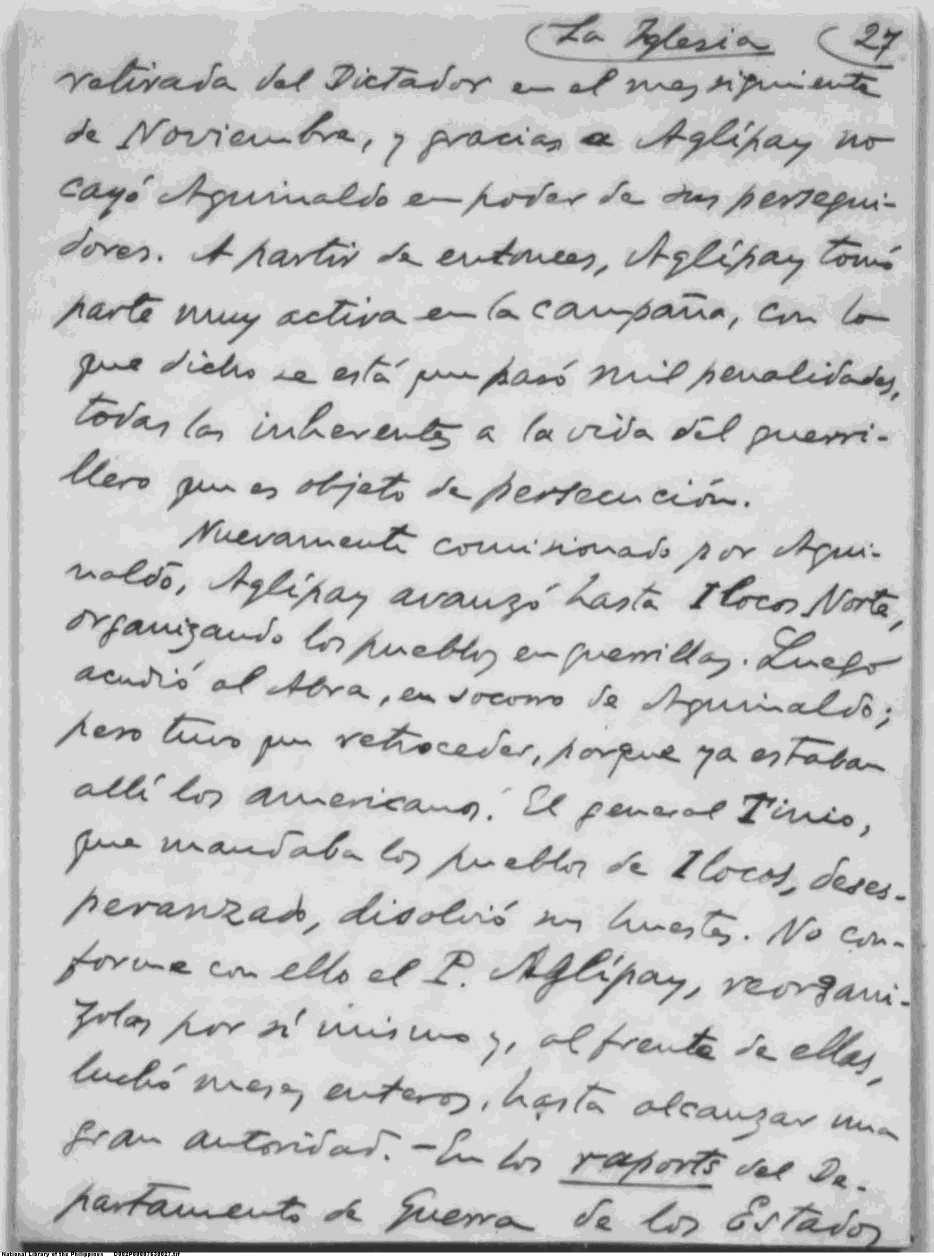 La Iglesia 27
retirada del Dictador en el mes siguiente
de Noviembre, y gracias a Aglípay no
cayó Aguinaldo en poder de sus persegui-
dores. A partir de entonces, Aglípay tomó
parte muy activa en la campaña, con lo
que dicho se está que pasó mil penalidades,
todas las inherentes a la vida del guerri-
llero que es objeto de persecución.
Nuevamente comisionado por Agui-
naldo, Aglípay avanzó hasta Ilocos Norte,
organizando los pueblos en guerrillas. Luego
acudió al Abra, en socorro de Aguinaldo;
pero tuvo que retroceder, porque ya estaban
allí los americanos. El general Tinio,
que mandaba los pueblos de Ilocos, deses-
peranzado, disolvió sus huestes. No con-
forme con ello el P. Aglípay, reorgani-
zolas por sí mismo y, al frente de ellas,
luchó meses enteros, hasta alcanzar una
gran autoridad. - En los raports del De-
partamento de Guerra de los Estados
National Library of the Philippines